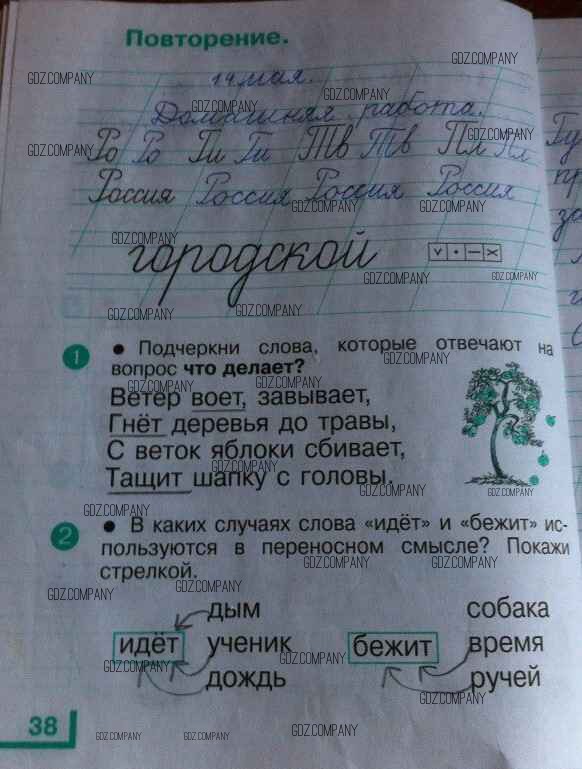 Повторение.
14 мая.
Домашняя работа.
Ро Ро Ги Ги Тв Тв Пл Пл
Россия Россия Россия Россия
городской
1 • Подчеркни слова, которые отвечают на
вопрос что делает?
Ветер воет, завывает,
Гнёт деревья до травы,
С веток яблоки сбивает,
Тащит шапку с головы.
2 • В каких случаях слова «идёт» и «бежит» ис-
пользуются в переносном смысле? Покажи
стрелкой.
дым собака
идёт ученик бежит время
дождь ручей
38
GDZ.COMPANY